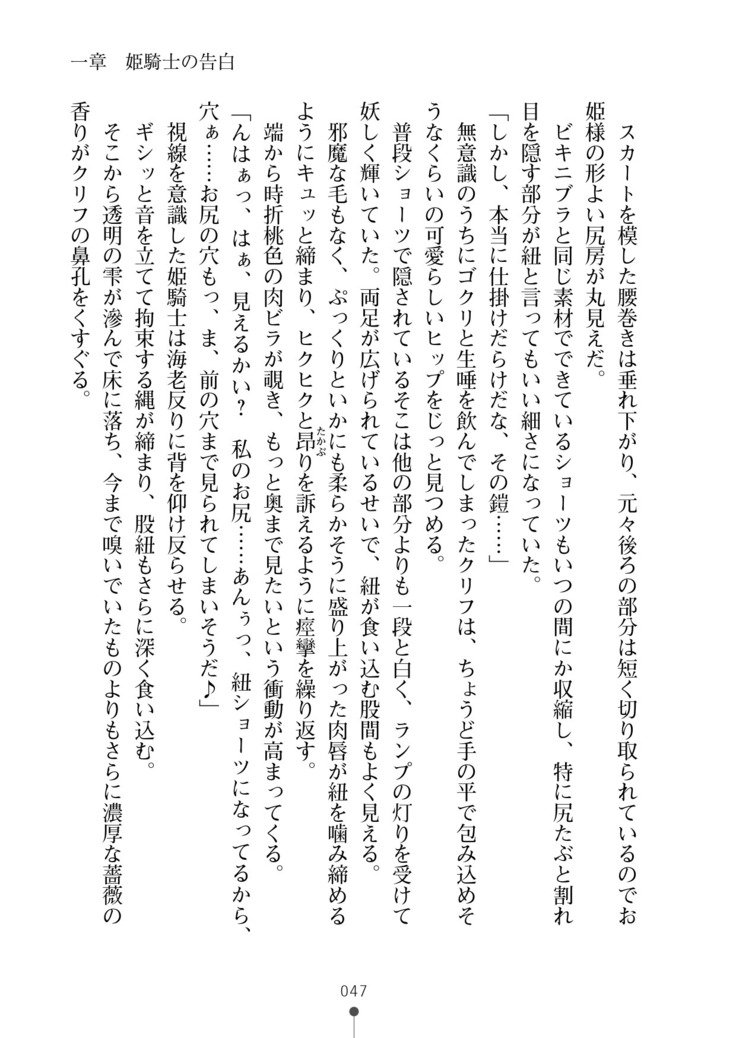 一章　姫騎士の告白
スカートを模した腰巻きは垂れ下がり、元々後ろの部分は短く切り取られているのでお
姫様の形よい尻房が丸見えだ。
ビキニブラと同じ素材でできているショーツもいつの間にか収縮し、特に尻たぶと割れ
目を隠す部分が紐と言ってもいい細さになっていた。
「しかし、本当に仕掛けだらけだな、その鎧……」
無意識のうちにゴクリと生唾を飲んでしまったクリフは、ちょうど手の平で包み込めそ
うなくらいの可愛らしいヒップをじっと見つめる。
普段ショーツで隠されているそこは他の部分よりも一段と白く、ランプの灯りを受けて
妖しく輝いていた。両足が広げられているせいで、紐が食い込む股間もよく見える。
邪魔な毛もなく、ぷっくりといかにも柔らかそうに盛り上がった肉唇が紐を噛み締める
ようにキュッと締まり、ヒクヒクと昂りを訴えるように痙攣を繰り返す。
たかぶ
端から時折桃色の肉ビラが覗き、もっと奥まで見たいという衝動が高まってくる。
「んはぁっ、はぁ、見えるかい？　私のお尻……あんぅっ、紐ショーツになってるから、
穴ぁ……お尻の穴もっ、ま、前の穴まで見られてしまいそうだ♪」
視線を意識した姫騎士は海老反りに背を仰け反らせる。
ギシッと音を立てて拘束する縄が締まり、股紐もさらに深く食い込む。
そこから透明の雫が滲んで床に落ち、今まで嗅いでいたものよりもさらに濃厚な薔薇の
香りがクリフの鼻孔をくすぐる。
047